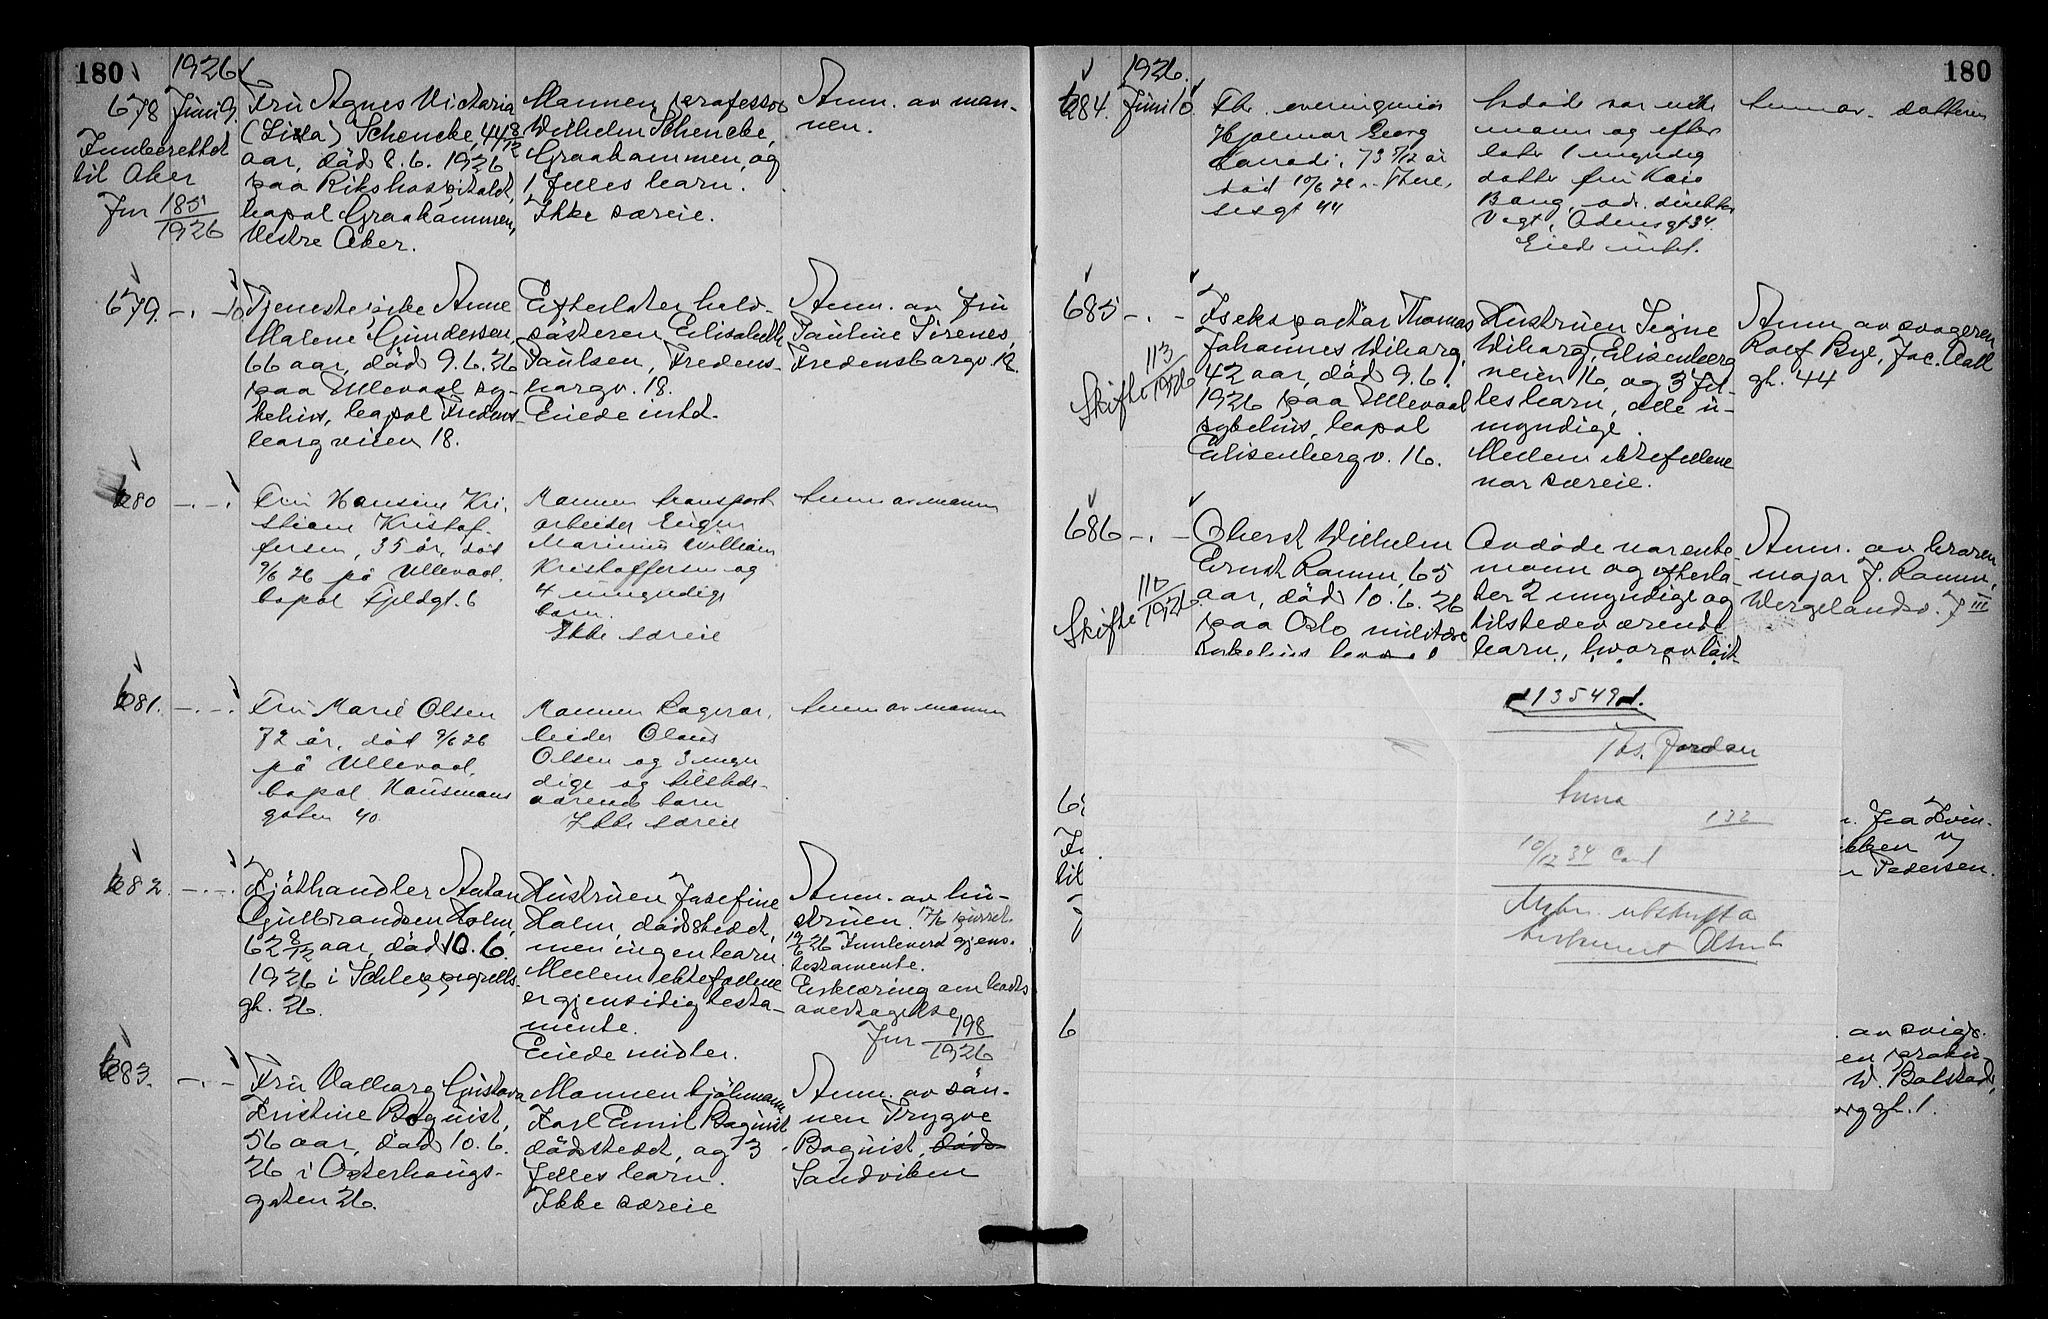 180
1926
678 Juni 9.
Innberettet
til Aker
Jnr 185/1926
Fru Agnes Victoria
Schencke, 44 8/12
aar, död 8.6. 1926
paa Rikshospitalet,
bopæl Graakammen,
Vestre Aker.
Mannen professor
Wilhelm Schencke,
Graakammen, og
1 felles barn.
Ikke særeie.
Anm. av man-
nen.
679. -.- 10.
Tjenestepike Anne
Malene Gundersen,
66 aar, död 9.6.26
paa Ullevaal sy-
kehus, bopæl Fredens-
borgveien 18.
Efterlater helt-
søsteren Elisabeth
Paulsen, Fredens-
borgv. 18.
Eiede intet.
Anm. av fru
Pauline Sirenes,
Fredensborgv. 18.
680 -.-
Fru Hansine Kri-
stiane Kristof-
fersen, 35 år, död
9/6 26 på Ullevaal,
bopæl Fjeldgt. 6
Mannen transport
arbeider Eugen
Marinius William
Kristoffersen og
4 umyndige
barn.
Ikke særeie
Anm av mannen
681. -.-
Fru Marie Olsen
72 år, död 9/6 26
på Ullevaal,
bopæl Hausmans
gaten 40
Mannen Lagerar-
beider Olaus
Olsen og 3 myn
dige og tilstede-
værende barn
Ikke særeie
Anm av mannen
682. -.-
Kjøthandler Anton
Gulbrandsen Holm,
62 8/12 aar, död 10.6.
1926 i Schleppegrells-
gt. 26.
Hustruen Josefine
Holm, dödsstedet,
men ingen barn.
Mellem ektefællene
er gjensidig testa-
mente.
Eiede midler.
Anm. av hu-
struen. 17/6
Innlevert gjens.
testamente.
Erklæring om boets
overtagelse
Jnr 198/1926
683. -.-
Fru Valborg Gustava
Kristine Boquist,
56 aar, död 10.6.
26 i Osterhaugs-
gaten 26.
Mannen
Karl Emil Boquist
dödsstedet, og 3
felles barn.
Ikke særeie
Anm. av sön-
nen Trygve
Boquist, döds-
Sandviken
180
1926.
684. Juni 10.
Fhv.
Hjalmar Georg
73 5/12 år
död 10/6 26 There-
sesgt 44
Avdøde var enke
mann og efter
later 1 myndig
datter fru Kaia
Bang, adr. direktør
Vogt, Odensgt 34.
Eiede intet.
Anm av datteren
685 -.-
Skifte 113/1926
Isekspeditør Thomas
Johannes Wiborg,
42 aar, död 9.6.
1926 paa Ullevaal
sykehus, bopæl
Elisenbergv. 16.
Hustruen Signe
Wiborg, Elisenberg
veien 16, og 3 fel-
les barn, alle u-
myndige.
Mellem ektefællene
var særeie.
Anm av svogeren
Rolf Bye, Jac. Aall
gt. 44
686 -.-
Skifte 110/1926
Oberst Wilhelm
Ernst Ramm, 65
aar, död 10.6.26
paa Oslo militære
sykehus,
Avdöde var enke
mann og efterla-
ter 2 myndige og
tilstedeværende
barn, hvorav löit-
Anm. av broren
major J. Ramm,
Wergelandsv. 7 III
13549
Ths. Jordan
Anna
132
10/12 34
utskrift a
testament Olsen
6
til
n. fra Kvin-
Pedersen.
6
av svige-
W. Bolstad,
borggt. 1.